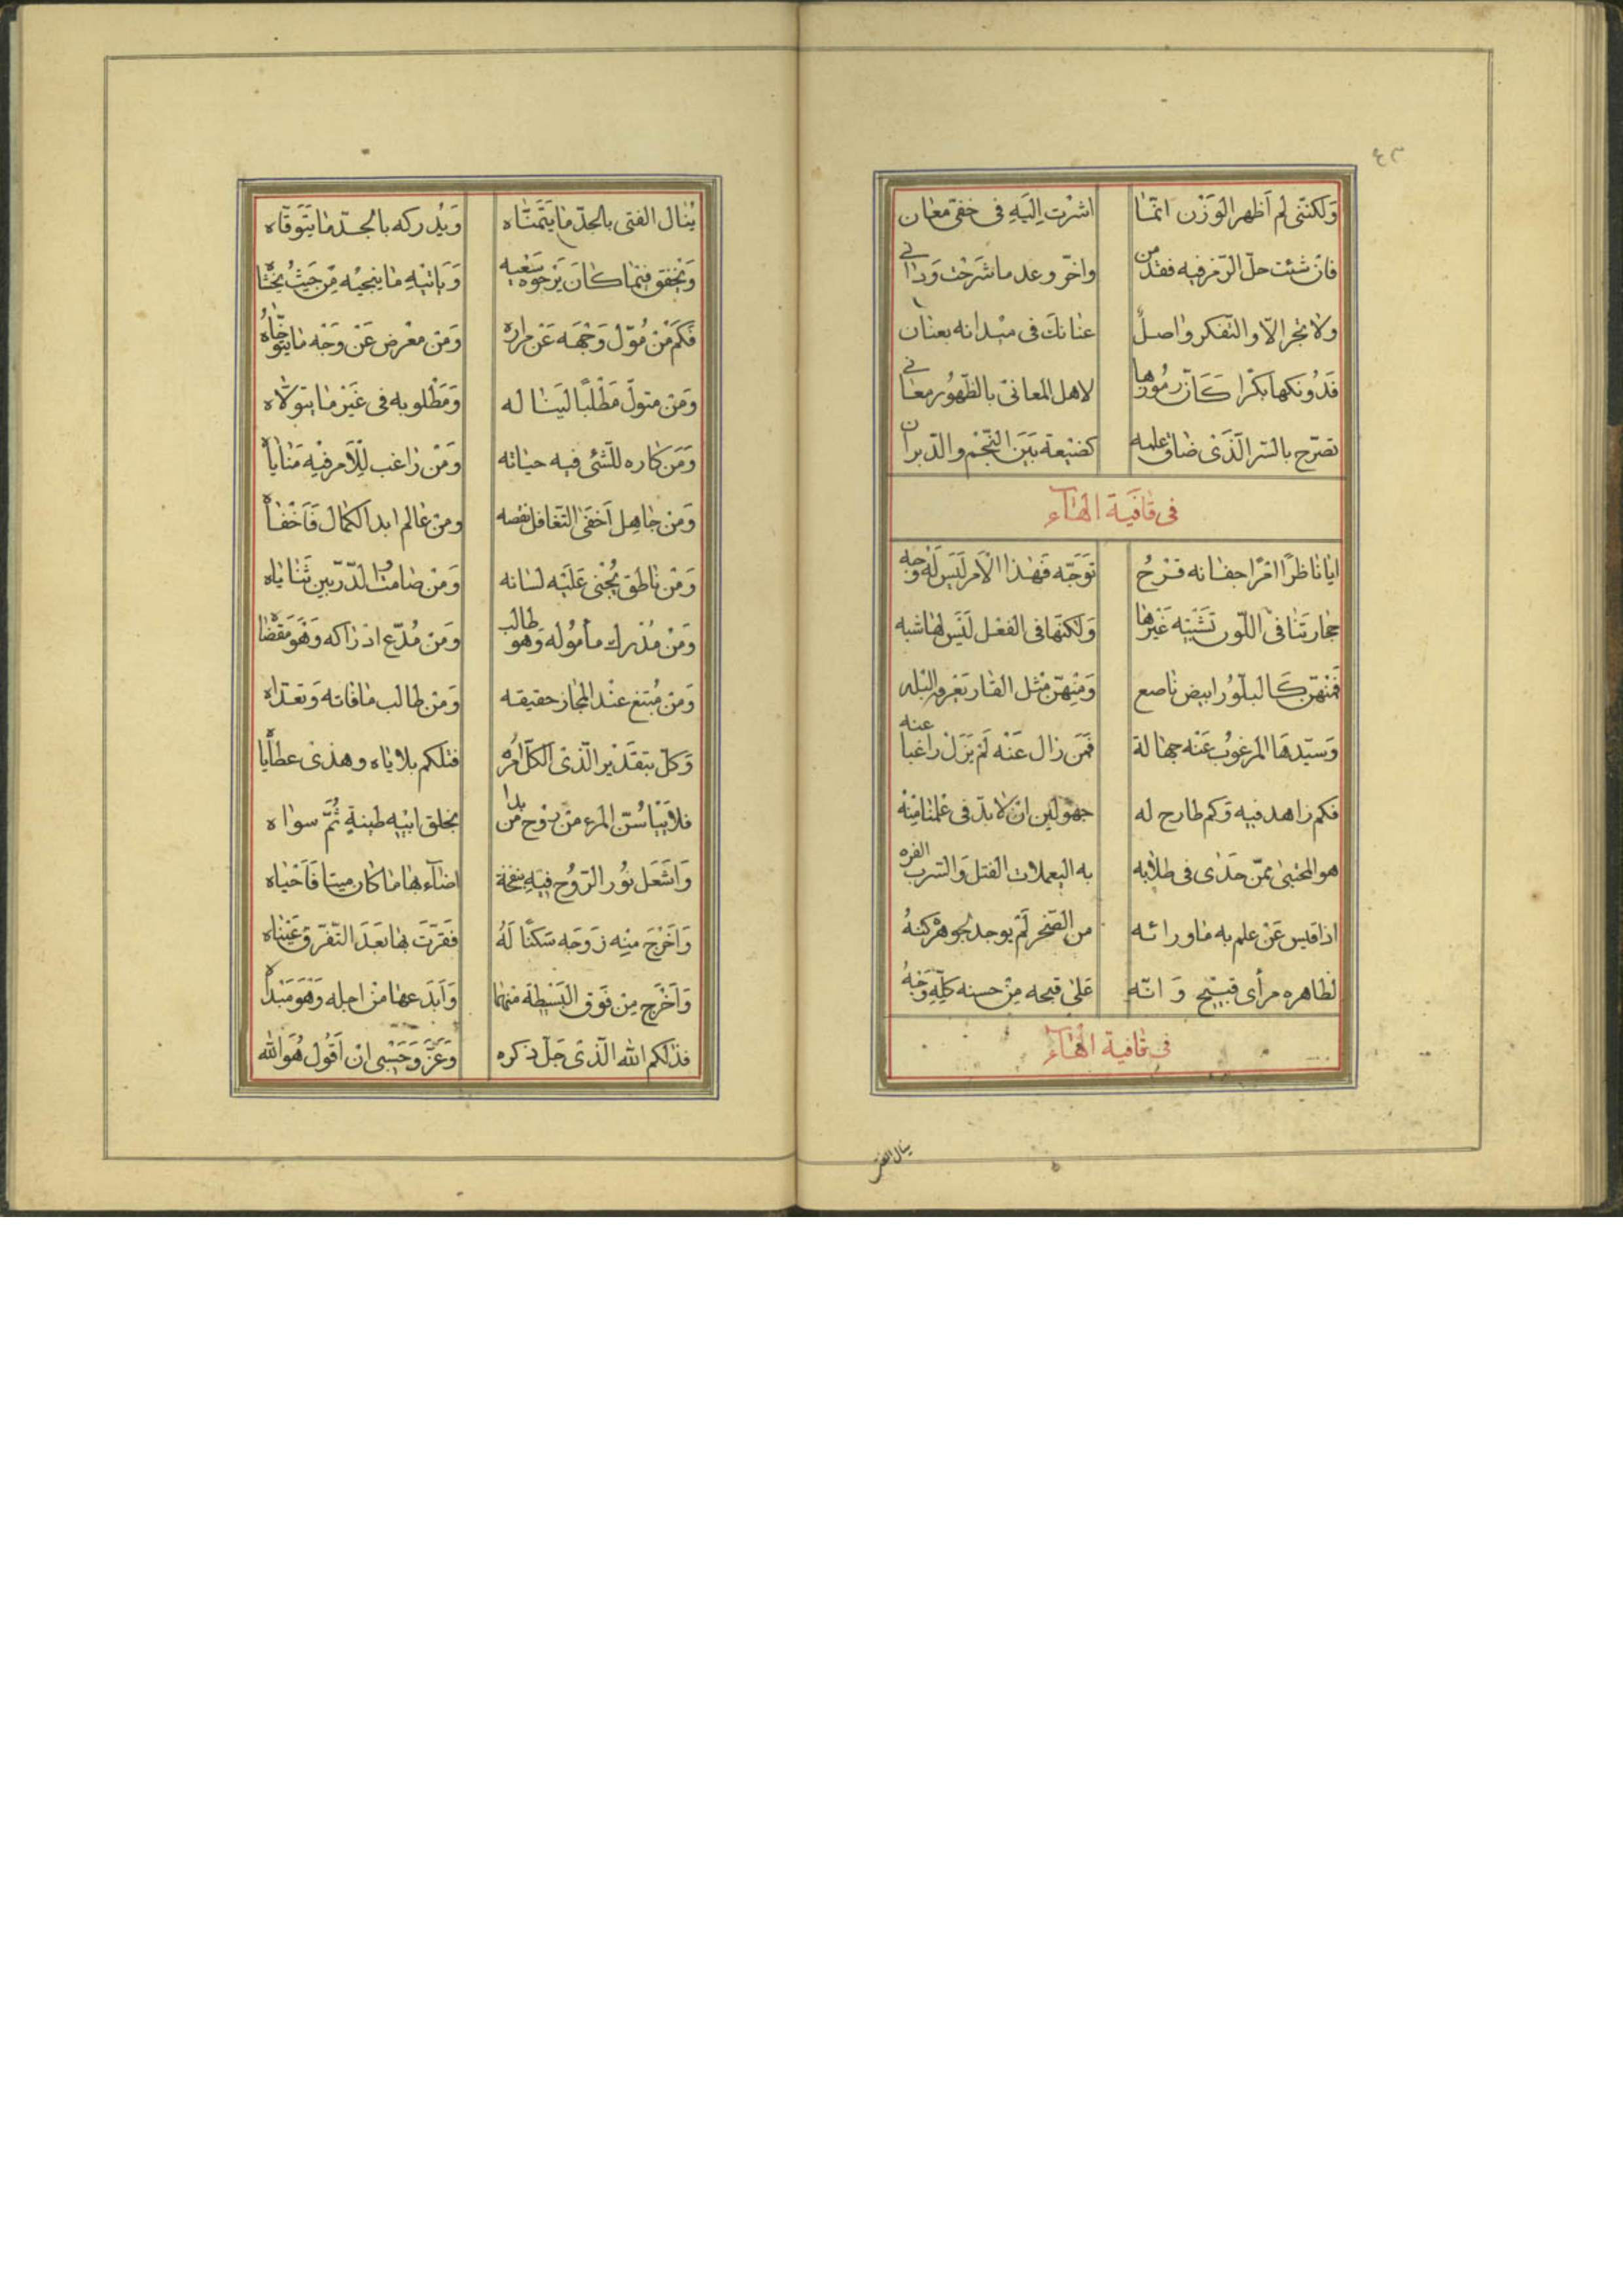 ٤٣
وَلكنّنى لم أظهر الوَزْن انّما اشرْت اِليَهِ فى خفىّ معان
فان شئت حلّ الرّمز فيه فقدّمن واخّر وعد ما شرَحْت وَدانے
ولا تجر الّا والتّفكر واصلٌ عنانك فى ميدانه بعنان
فَدُونكها بكرًا كَأنّ رمُوزها لاهل المعانىّ بالظّهُور معانے
تصَرّح بالسّر الّذى ضاق علمه كضيعة بَيَن النّجْم والدّبران
فى قافَية الهاء
ايا ناظرًا اقرًا جفانه توَجّه فَهذا الْامر لَيَس لَهُ وجه
حجارَتنا فى اللّون تشَبْه غَيْرها وَلكنّها فى الفعْل لَيَس لها شبه
فمَنْهنّ كَالبلّوُر ابيض ناصع وَمِنهنّ مثل القار
وَسيّدهَا المرغوُب عَنْه جهالة فمَن زال عَنْه لَمْ يَزَلْ راغبا عنه
فكم زاهد فيه وَكم طارح له جهولين ان لا بدّ فى علمنا مِنْه
هو المجْتبىٰ ممّن حَذى فى طلابه به اليعملات الفتل وَالسّرب الفره
اذا قيس عَنْ علم به ماورائه من الصّخر لَمْ يوجد لجوهره كنهُ
لظاهره مرأى قبيح وَ انّه علىٰ قبحه مِنْ حسنه كلّهِ وَجْهُ
فى قافية الهاء
ينال الفتى
يُنال الفتى بالجدّ ما يَتَمنّاه وَيُدركه بالجدّ ما يَتَوقّاه
وَيَخفق فيما كانَ يَرْجوُه سَعْيه وَياتيهِ ما ينجيْه مِن حَيثُ يخشاه
فكَم منْ مُوّل وَجْهَه عَنْ مراده وَمَن معْرض عَنْ وَجْه ما يتوخّاهُ
وَمَن متولّ مَطْلبًا ليَنا له وَمَطْلوبه فى غَيْر ما يتولّاه
وَمَن كاره للشّئ فيه حياته وَمَنْ راغب لِلْاَمر فيْه مَناياه
وَمَن جاهِل اَخفىٰ التّغافل نقصه ومن عالم ابدا الكمال فَاَخْفاه
وَمَنْ ناطق يُجْنى عَليْه لسَانه وَمَنْ صامت الدّر بين ثَناياه
وَمَن مُدْرك مأموُله وَهو طالب وَمَن مُدّع ادراكه وَهَو مَقْصاه
وَمَن مُبتغ عنْد المجاز حقيقه وَمَن طالب مافاته وَتعدّاه
وَكلّ بتقَديْر الّذى الكلّ امْره فتلكم بلاياه وهذى عطاياه
فلا ييَاسُنّ المرء منْ رَوْح من بدا بخلق ابيْه طينةٍ ثُمّ سواه
وَاَشعَل نوُر الرّوُح فيهِ بنفخة اضاء بها ما كان ميتا فَاَحْياه
وَاَخْرَجَ منِه زَوجه سَكنًا لَهُ فَقرّتْ بها بَعَدَ التّفرّق عَيْناه
وَاَخْرج مِن فَوق البَسَيطة منهما وَاَبدَعها منْ اجله وَهَو مَبْداه
فذلكم الله الّذى جَلّ ذكره وَعَزَّ وَحَسْبى ان اَقُول هُوَ الله